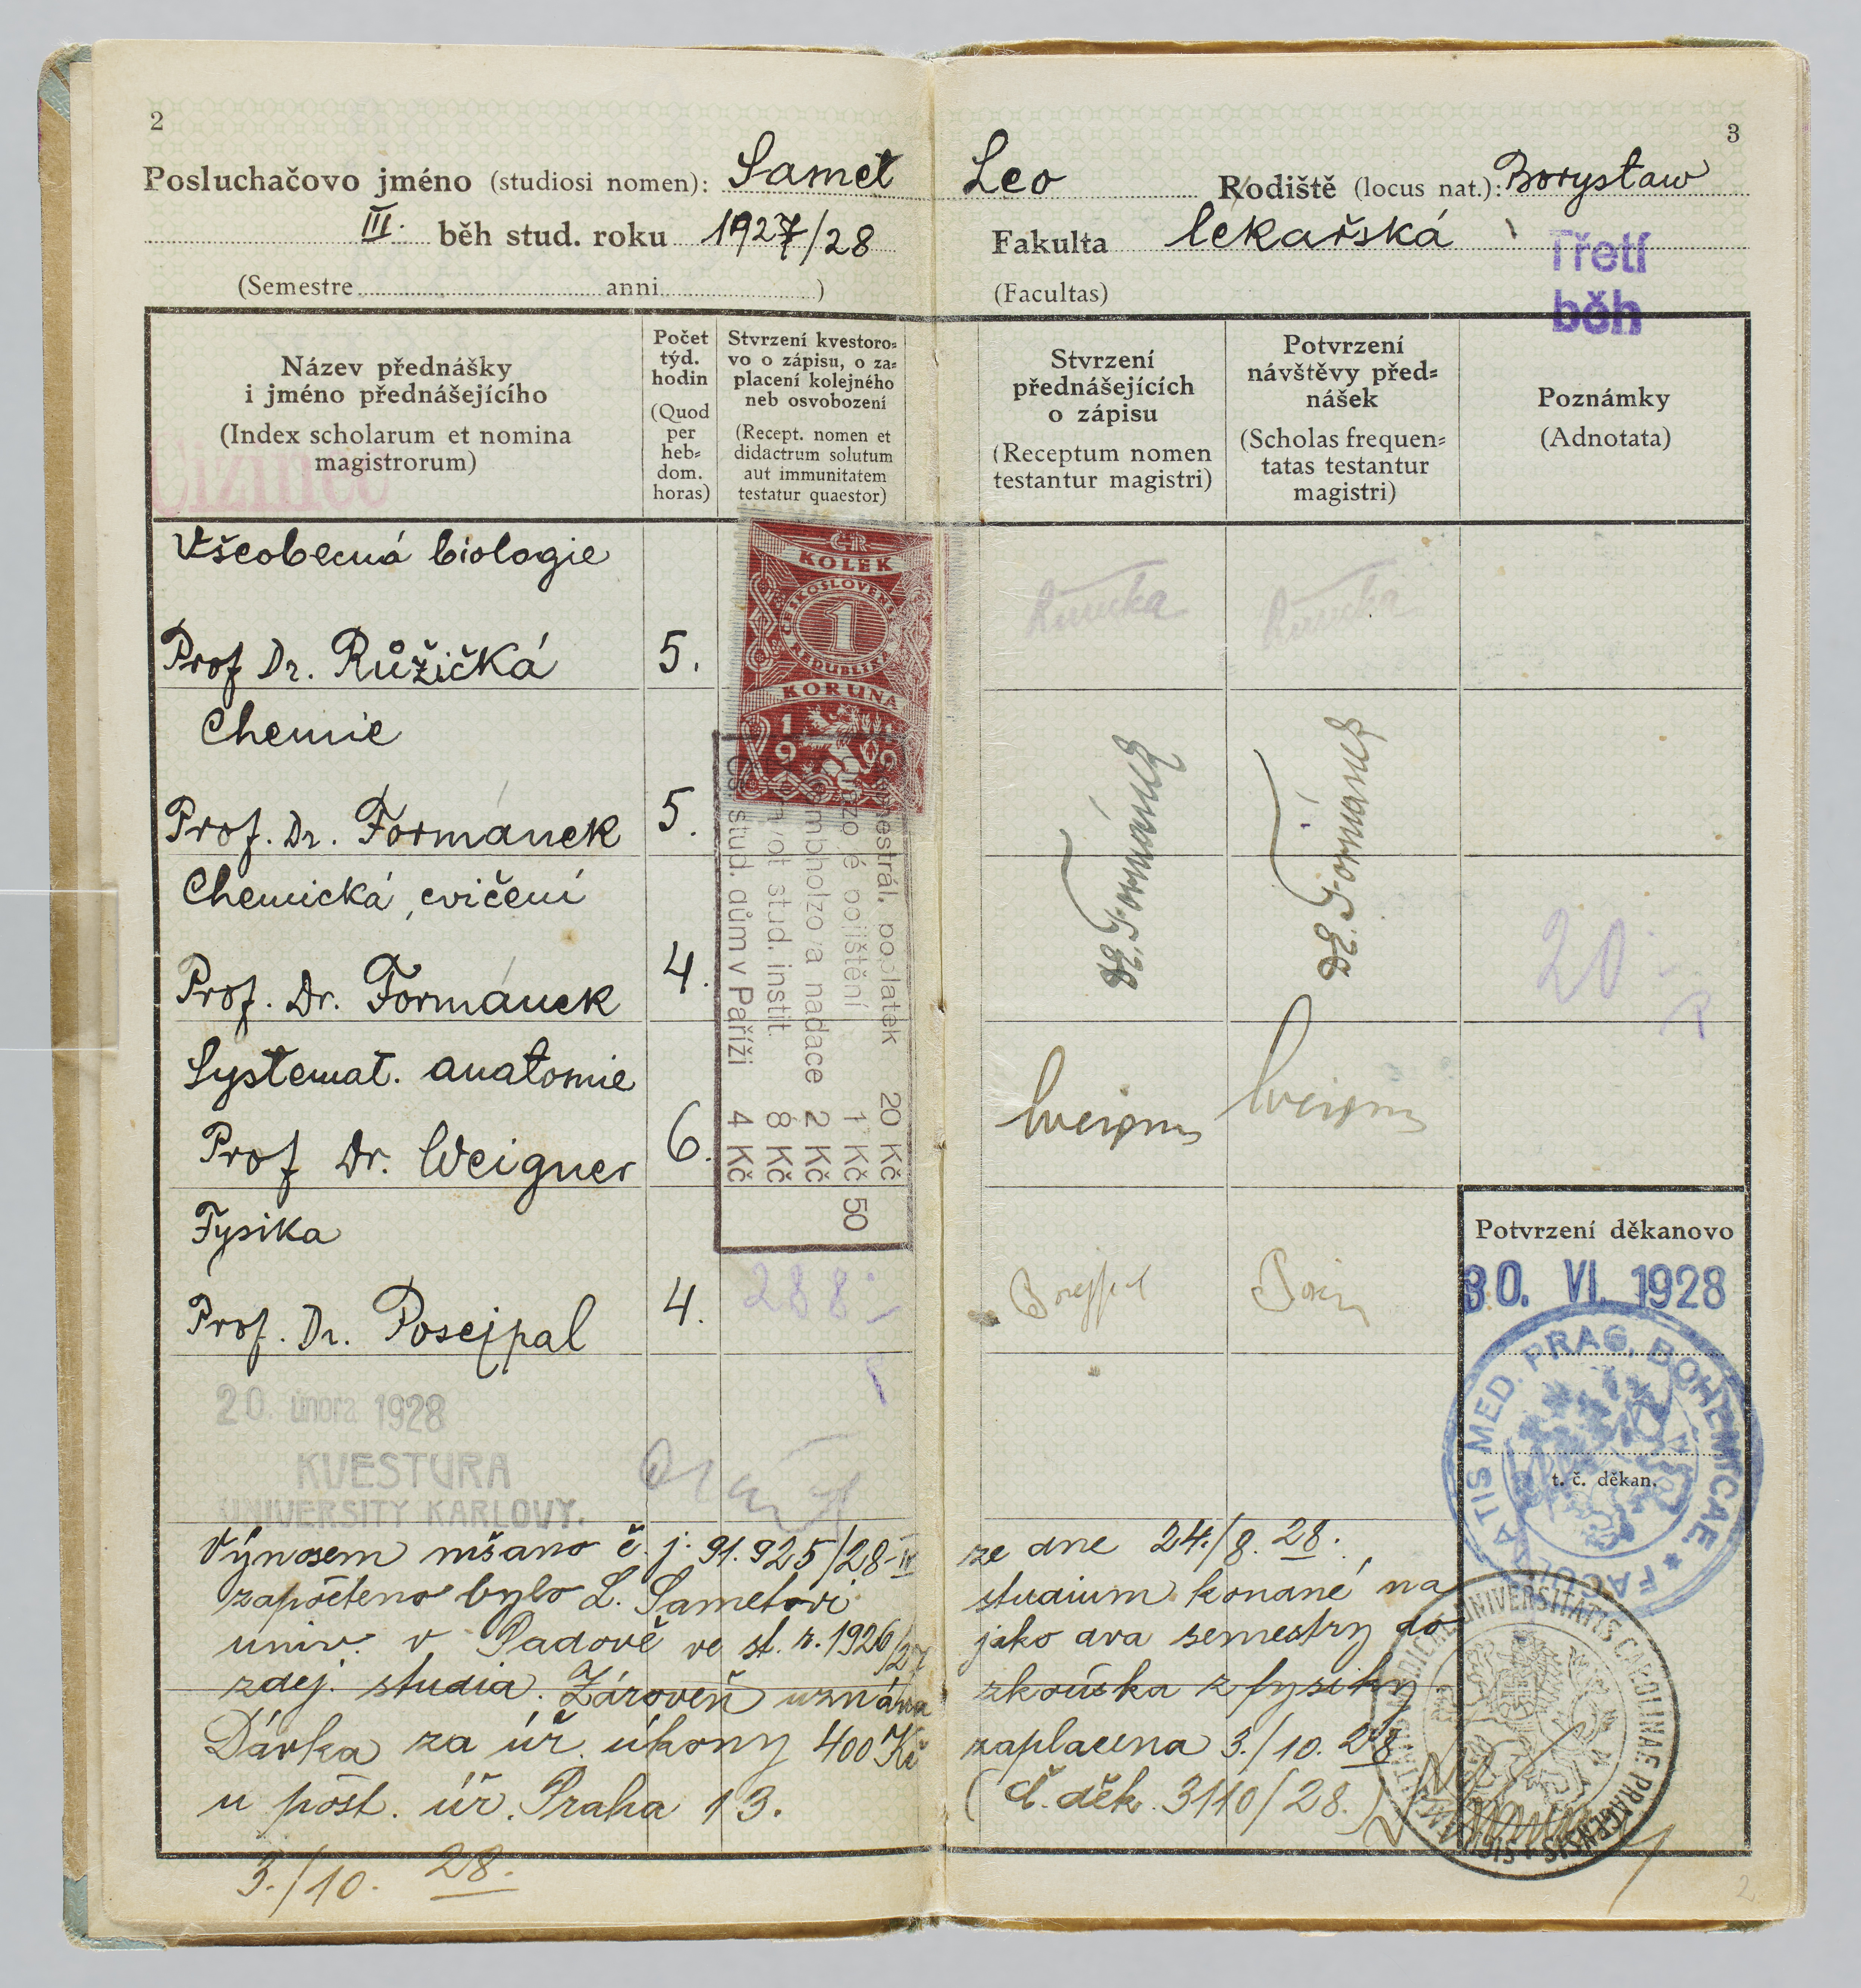 2
3
Posluchačovo jméno (studiosi nomen): Samet Leo Rodiště (locus nat.): Borysław
III. běh stud. roku 1927/28 Fakulta lékařská
Třetí
běh
(Semestre anni ) (Facultas)
Název přednášky
i jméno přednášejícího
(Index scholarum et nomina
magistrorum)
Cizinec
Počet
týd.
hodin
(Quod
per
heb=
dom.
horas)
Stvrzení kvestoro=
vo o zápisu, o za=
placení kolejného
neb osvobození
(Recept. nomen et
didactrum solutum
aut immunitatem
testatur quaestor)
Stvrzení
přednášejících
o zápisu
(Receptum nomen
testantur magistri)
Potvrzení
návštěvy před=
nášek
(Scholas frequen=
tatas testantur
magistri)
Poznámky
(Adnotata)
Všeobecná biologie
Prof Dr. Růžičká 5.
Chemie
Prof. Dr. Formánek 5.
Chemická cvičení
Prof. Dr. Formánek 4.
Systemat. anatomie
Prof Dr. Weigner 6.
Fysika
Prof. Dr. Posejpal 4.
ČR
KOLEK
ČESKOSLOVENSKÁ
1
REPUBLIKA
KORUNA
19
semestrál. poplatek 20 Kč
úrazové pojištění 1 Kč 50
Humbholzova nadace 2 Kč
stud. instit. 8 Kč
stud. dům v Paříži 4 Kč
288
Růžička Růžička
Dr. Formánek
Dr. Formánek
Weigner Weigner
20
Potvrzení děkanovo
30. VI. 1928
FACULTATIS MED. PRAG. BOHEMICAE
t. č. děkan.
20. února 1928
KVESTURA
UNIVERSITY KARLOVY.
Výnosem mšano č. j. 91.925/28-IV ze dne 24./8. 28.
započteno bylo L. Sametovi studium konané na
univ. v Padově ve st. r. 1926/27 jako dva semestry do
zdej. studia. Zároveň uznána zkouška z fysiky
Dávka za úř. úkony 400 Kč zaplacena 3./10. 28
u pošt. úř. Praha 13. (č. děk. 3110/28.)
3./10. 28.
UNIVERSITATIS CAROLINAE PRAGENSIS
2